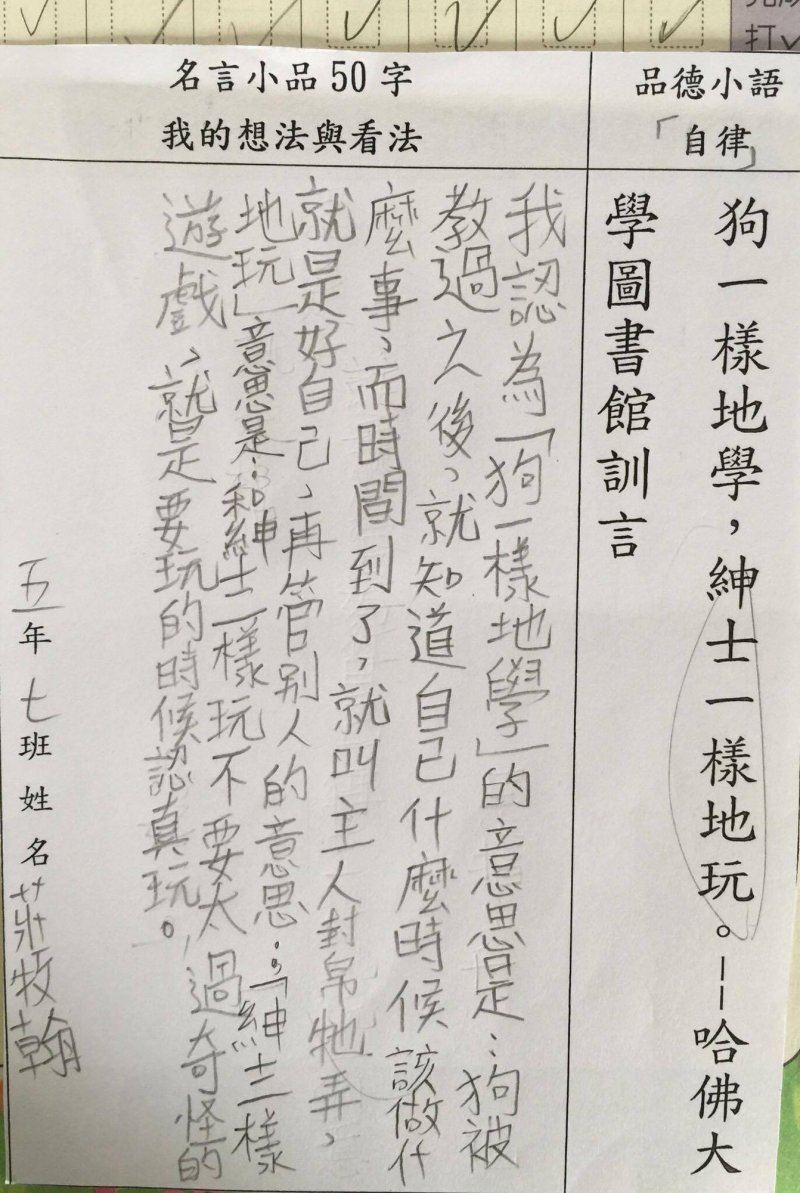 品德小語
「自律」
狗一樣地學，紳士一樣地玩。——哈佛大
學圖書館訓言
名言小品50字
我的想法與看法
我認為「狗一樣地學」的意思是：狗被
教過之後，就知道自己什麼時候該做什
麼事，而時間到了，就叫主人幫牠弄，
就是好自己，再管別人的意思。「紳士一樣
地玩」意思是：和紳士一樣玩不要太過奇怪的
遊戲，就是要玩的時候認真玩。
五年七班姓名莊牧翰